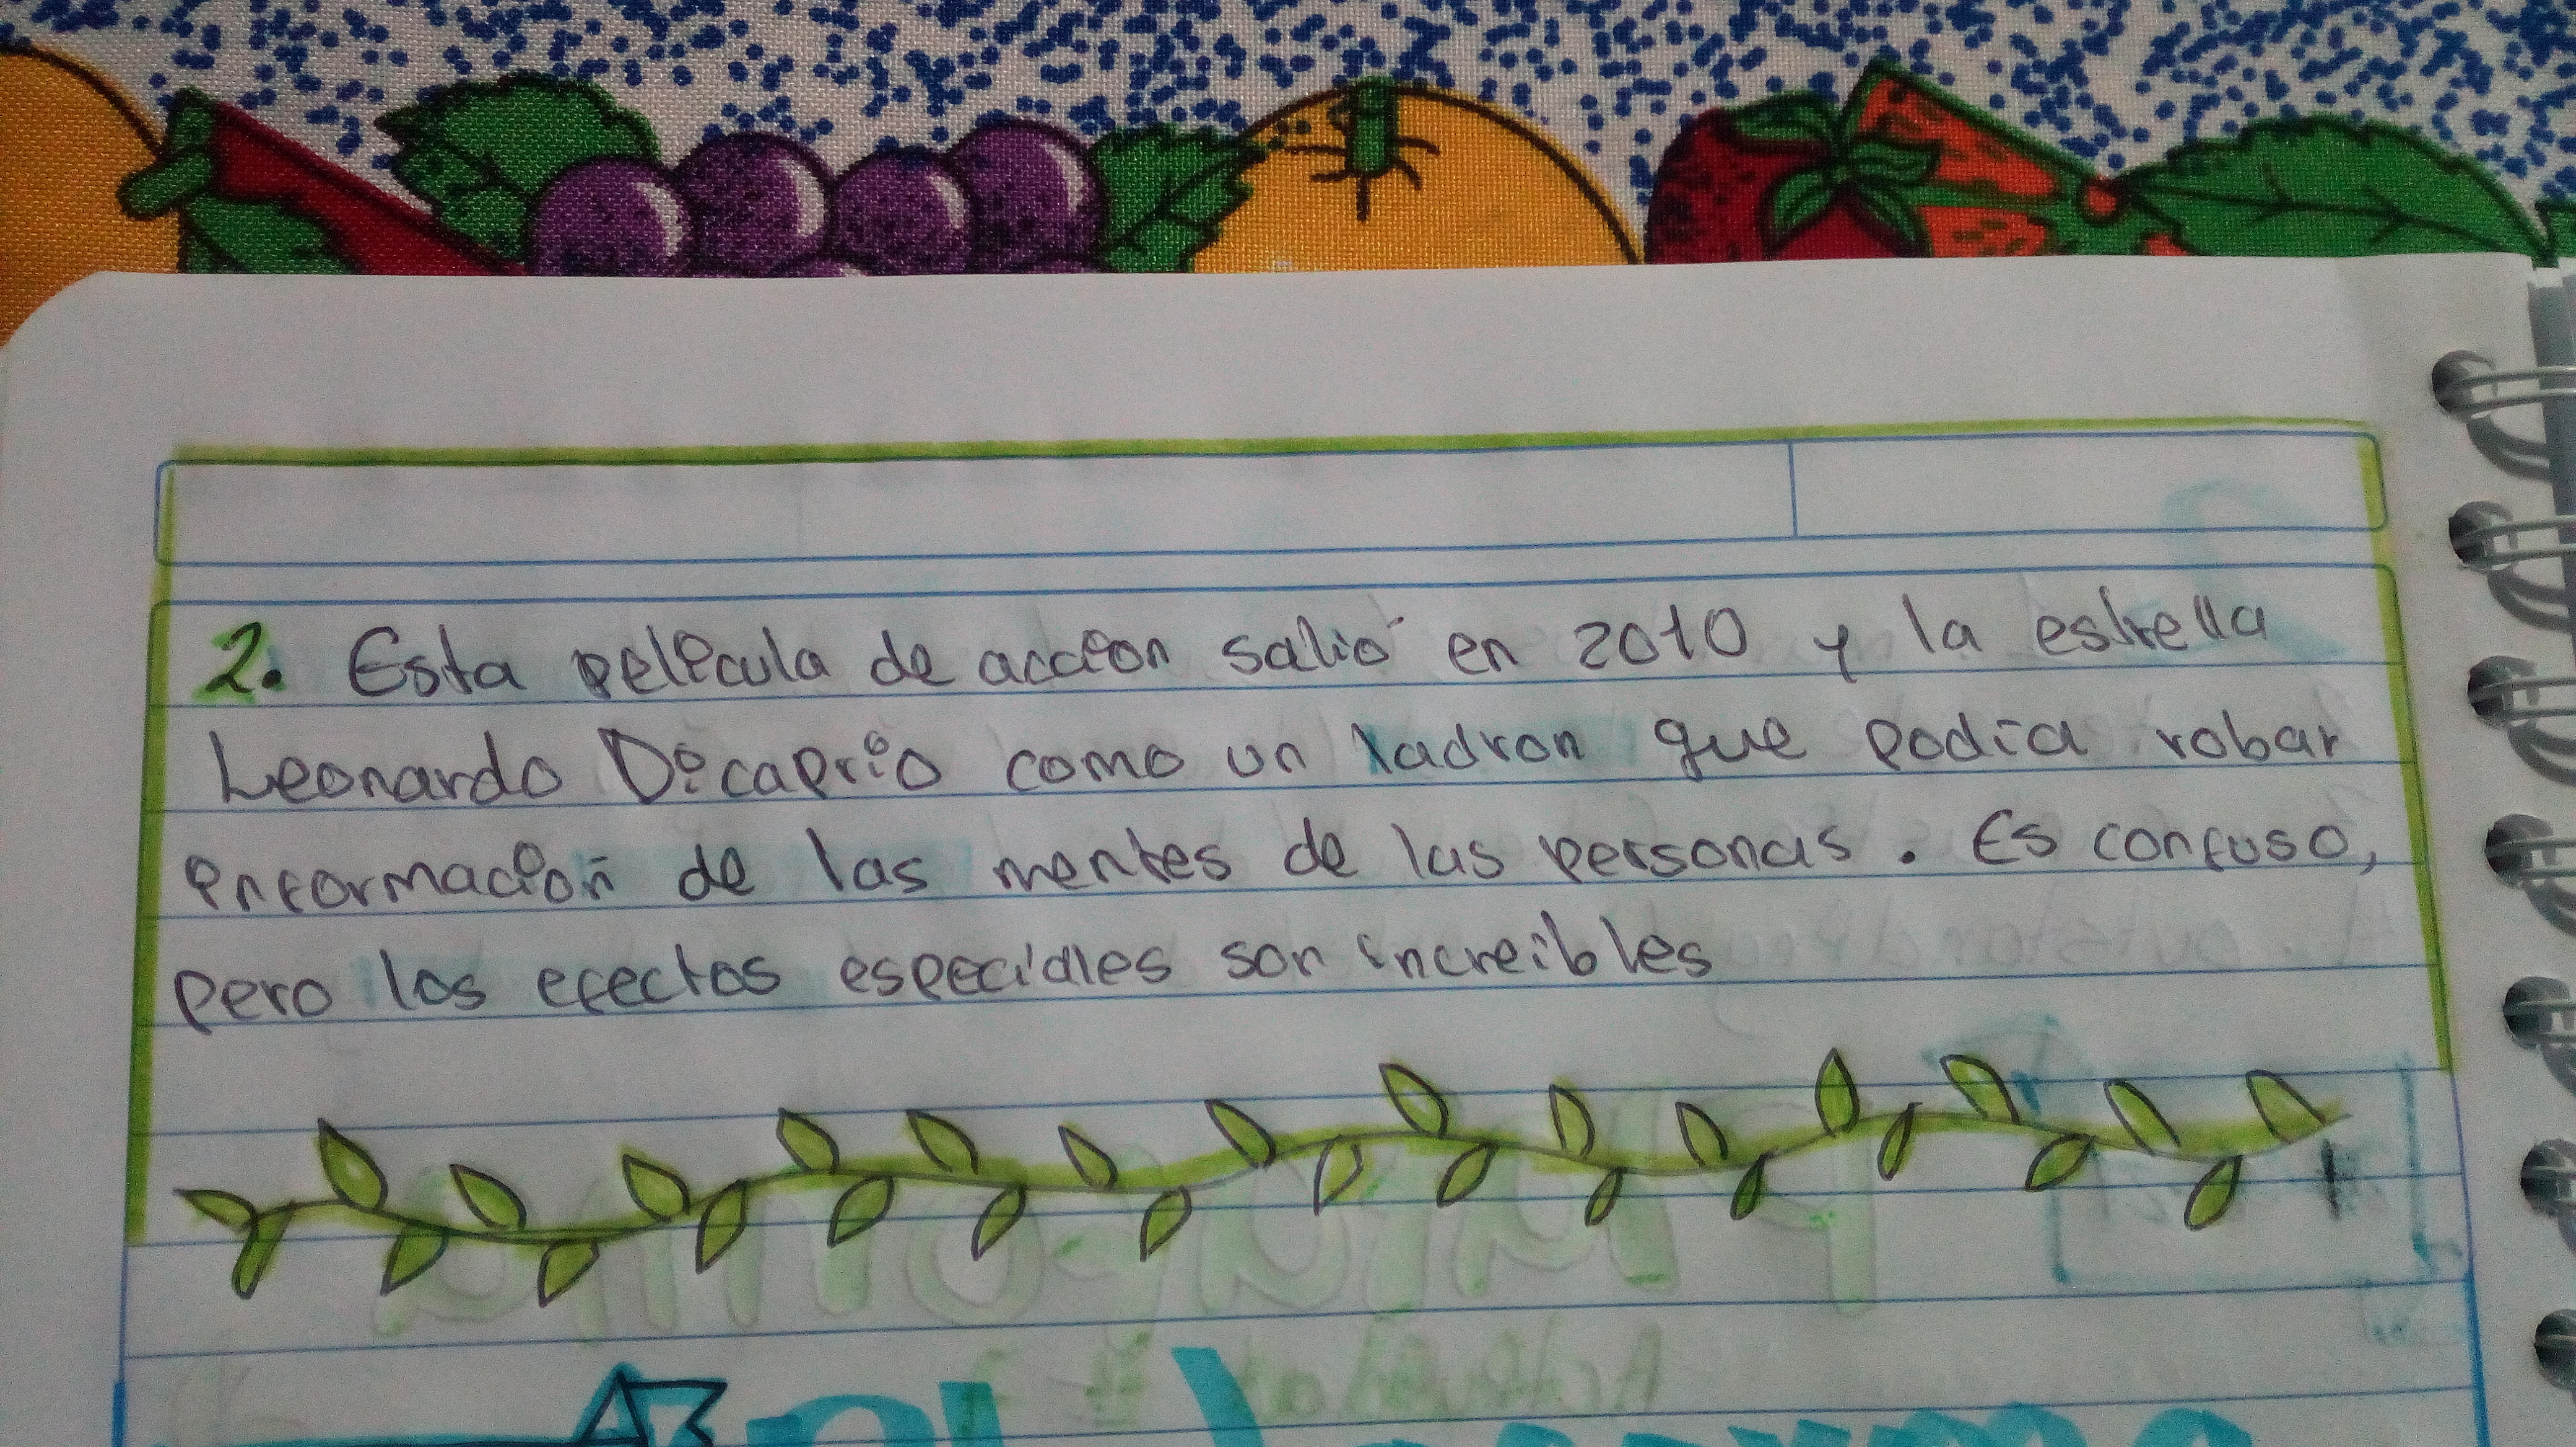 2. Esta pelicula de accion salió en 2010 y la estrella
Leonardo Dicaprio como un ladron que podía robar
informacion de las mentes de las personas. Es confuso,
pero los efectos especiales son increibles